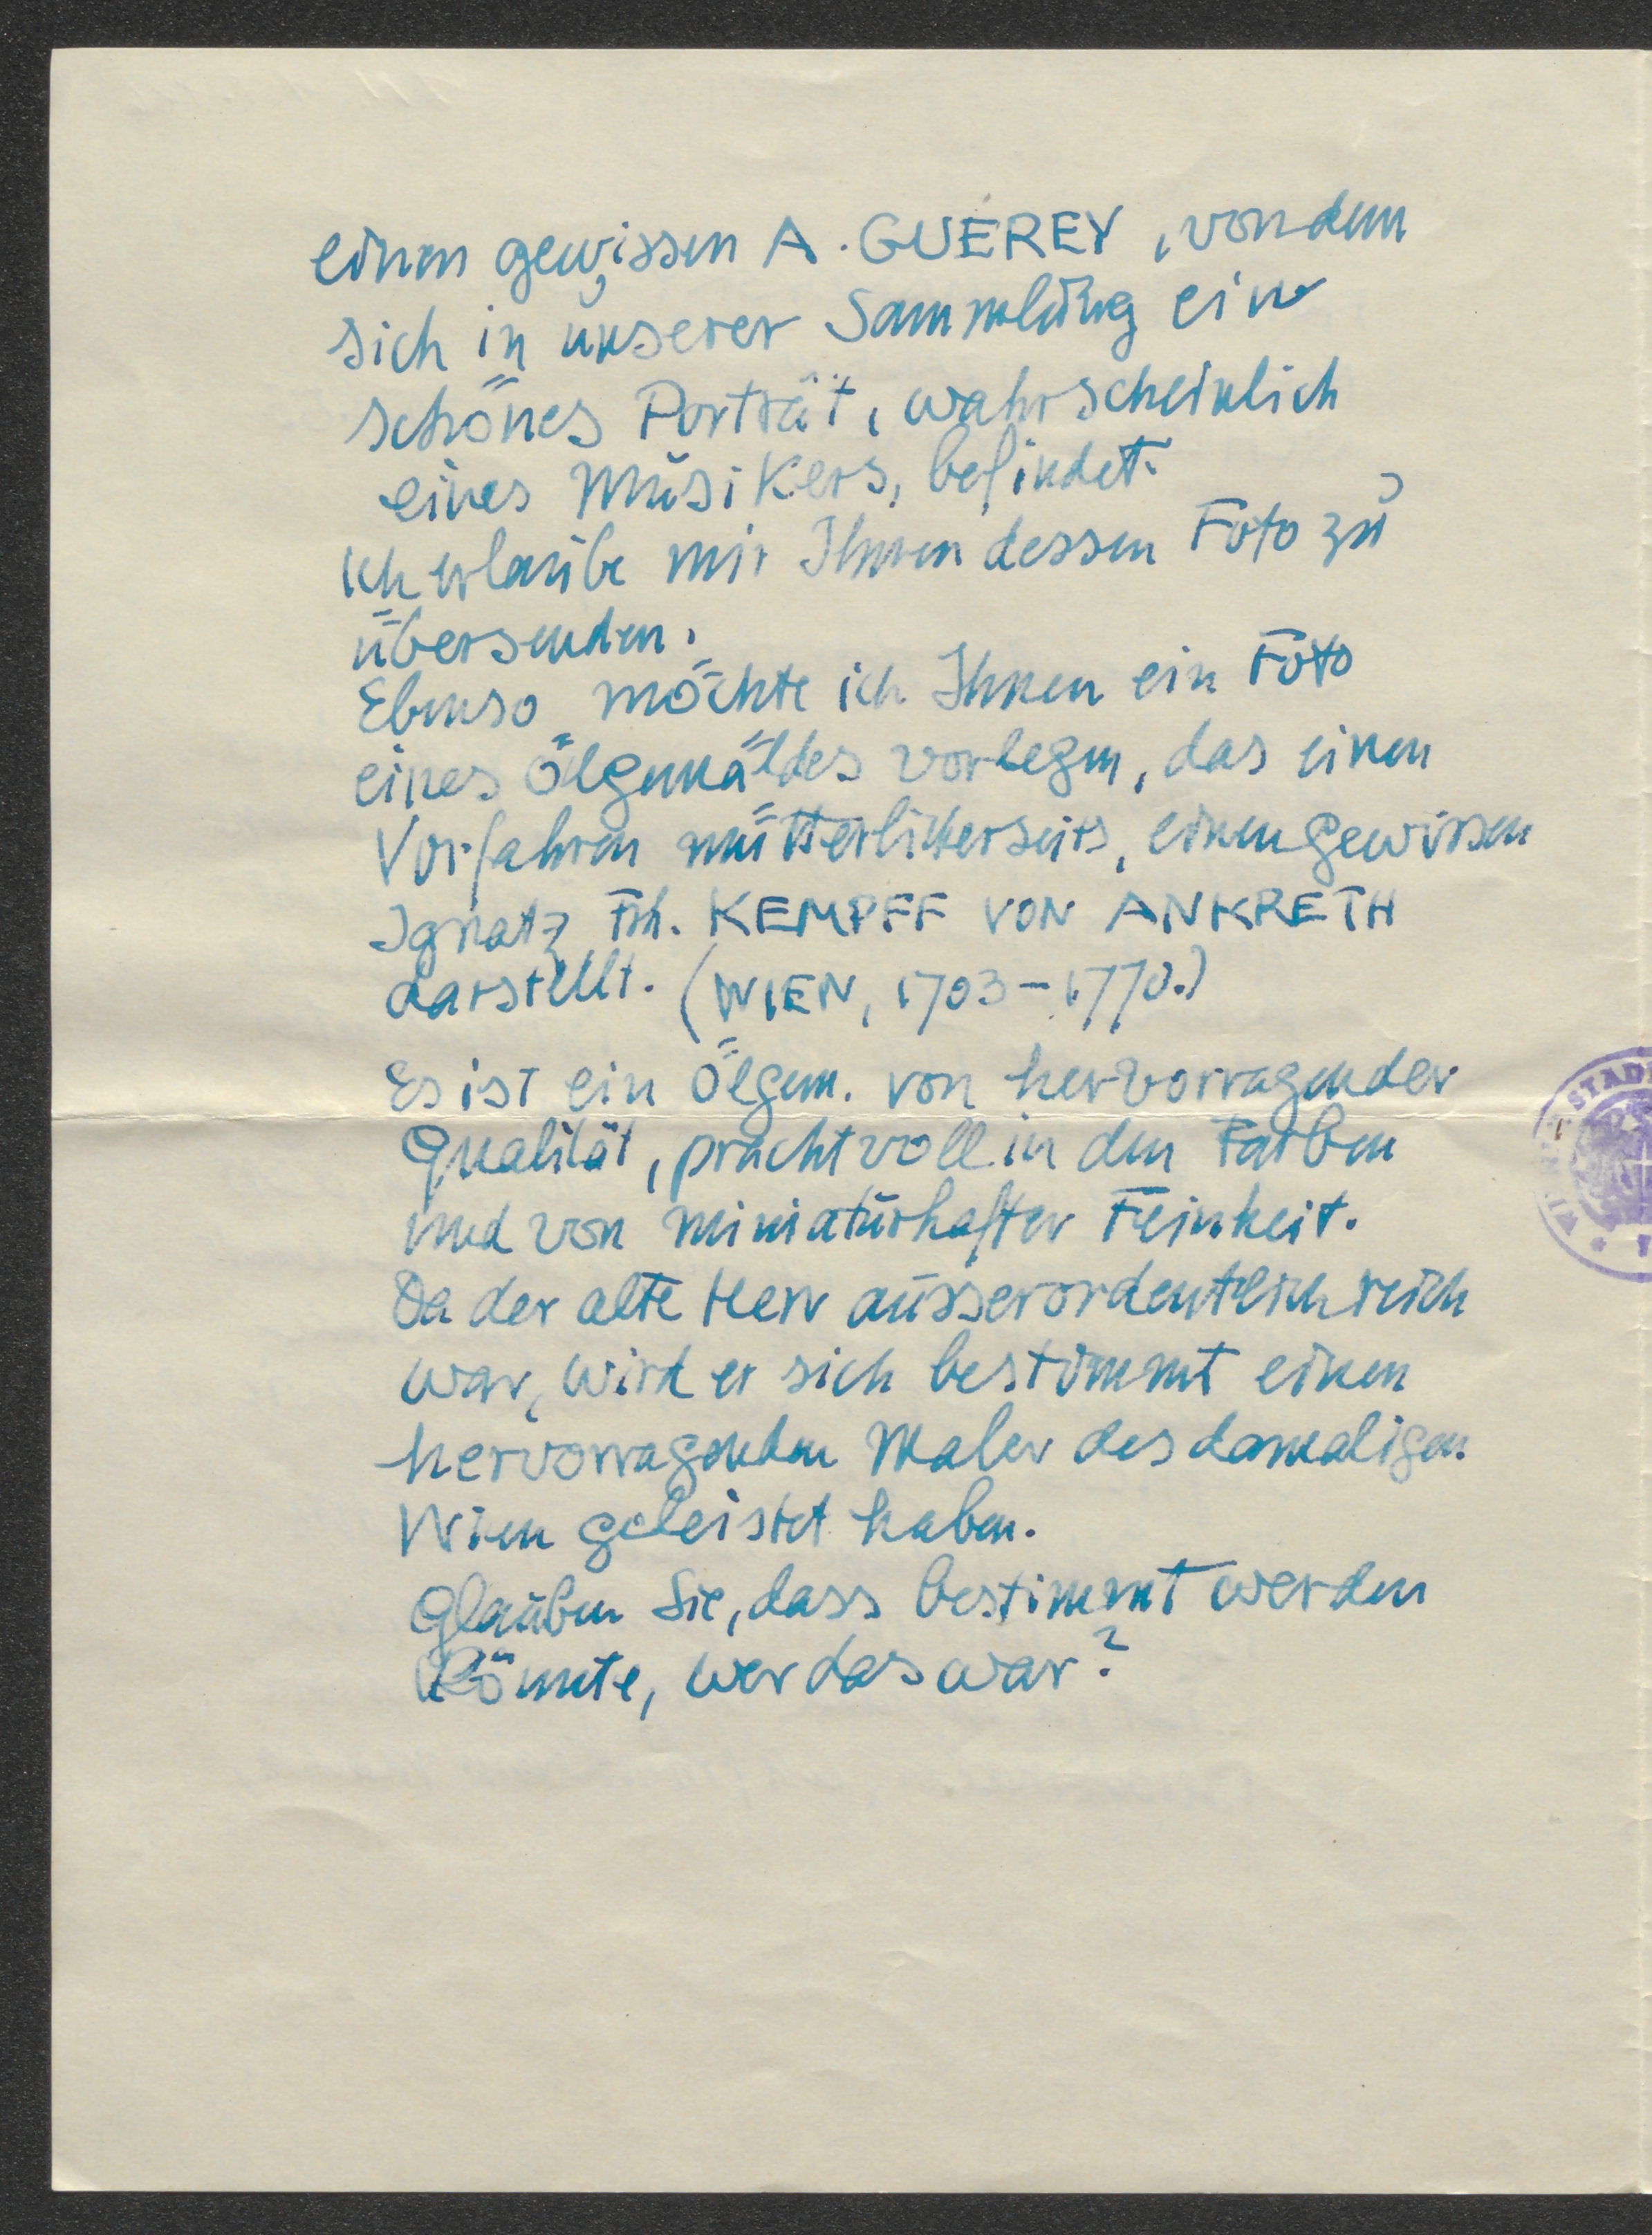 einen gewissen A. GUEREY, von dem
sich in unserer Sammlung ein
schönes Porträt, wahrscheinlich
eines Musikers, befindet.
Ich erlaube mir Ihnen dessen Foto zu
übersenden.
Ebenso möchte ich Ihnen ein Foto
eines Ölgemäldes vorlegen, das einen
Vorfahren mütterlicherseits, einen gewissen
Ignatz Frh. KEMPFF VON ANKRETH
darstellt. (WIEN, 1703-1770.)
Es ist ein Ölgem. von hervorragender
Qualität, prachtvoll in den Farben
und von miniaturhafter Feinheit.
Da der alte Herr ausserordentlich reich
war, wird er sich bestimmt einen
hervorragenden Maler des damaligen
Wien geleistet haben.
Glauben Sie, dass bestimmt werden
könnte, wer das war?
STAD